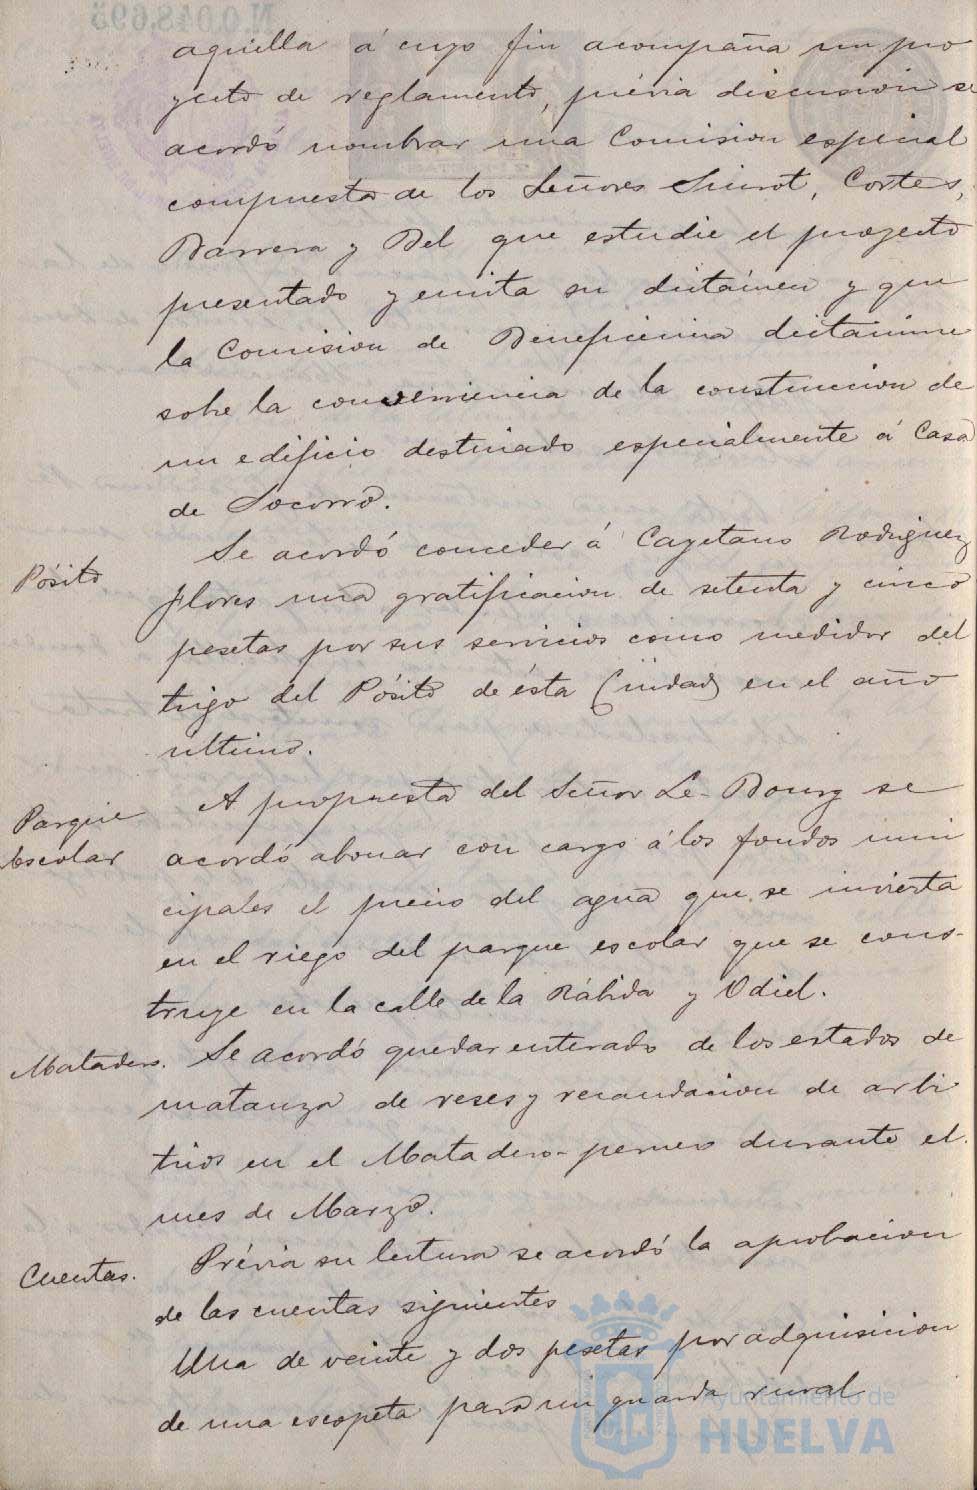 N.0.048,695
aquella á cuyo fin acompaña un pro
yecto de reglamento, prévia discusion se
acordó nombrar una Comision especial
compuesta de los Señores Siurot, Cortes,
Barrera y Bel que estudie el proyecto
presentado y emita su dictámen y que
la Comision de Beneficencia dictamine
sobre la conveniencia de la construccion de
un edificio destinado especialmente á Casa
de Socorro.
Pósito
Se acordó conceder á Cayetano Rodriguez
Flores una gratificacion de setenta y cinco
pesetas por sus servicios como medidor del
trigo del Pósito de ésta Ciudad en el año
ultimo.
Parque
Escolar
A propuesta del Señor Le-Bourg se
acordó abonar con cargo á los fondos muni
cipales el precio del agua que se invierta
en el riego del parque escolar que se cons-
truye en la calle de la Rábida y Odiel.
Matadero.
Se acordó quedar enterado de los estados de
matanza de reses y recaudacion de arbi
trios en el Matadero-pernero durante el
mes de Marzo.
Cuentas.
Prévia su lectura se acordó la aprobacion
de las cuentas siguientes
Una de veinte y dos pesetas por adquisicion
de una escopeta para un guarda rural
Ayuntamiento de
HUELVA